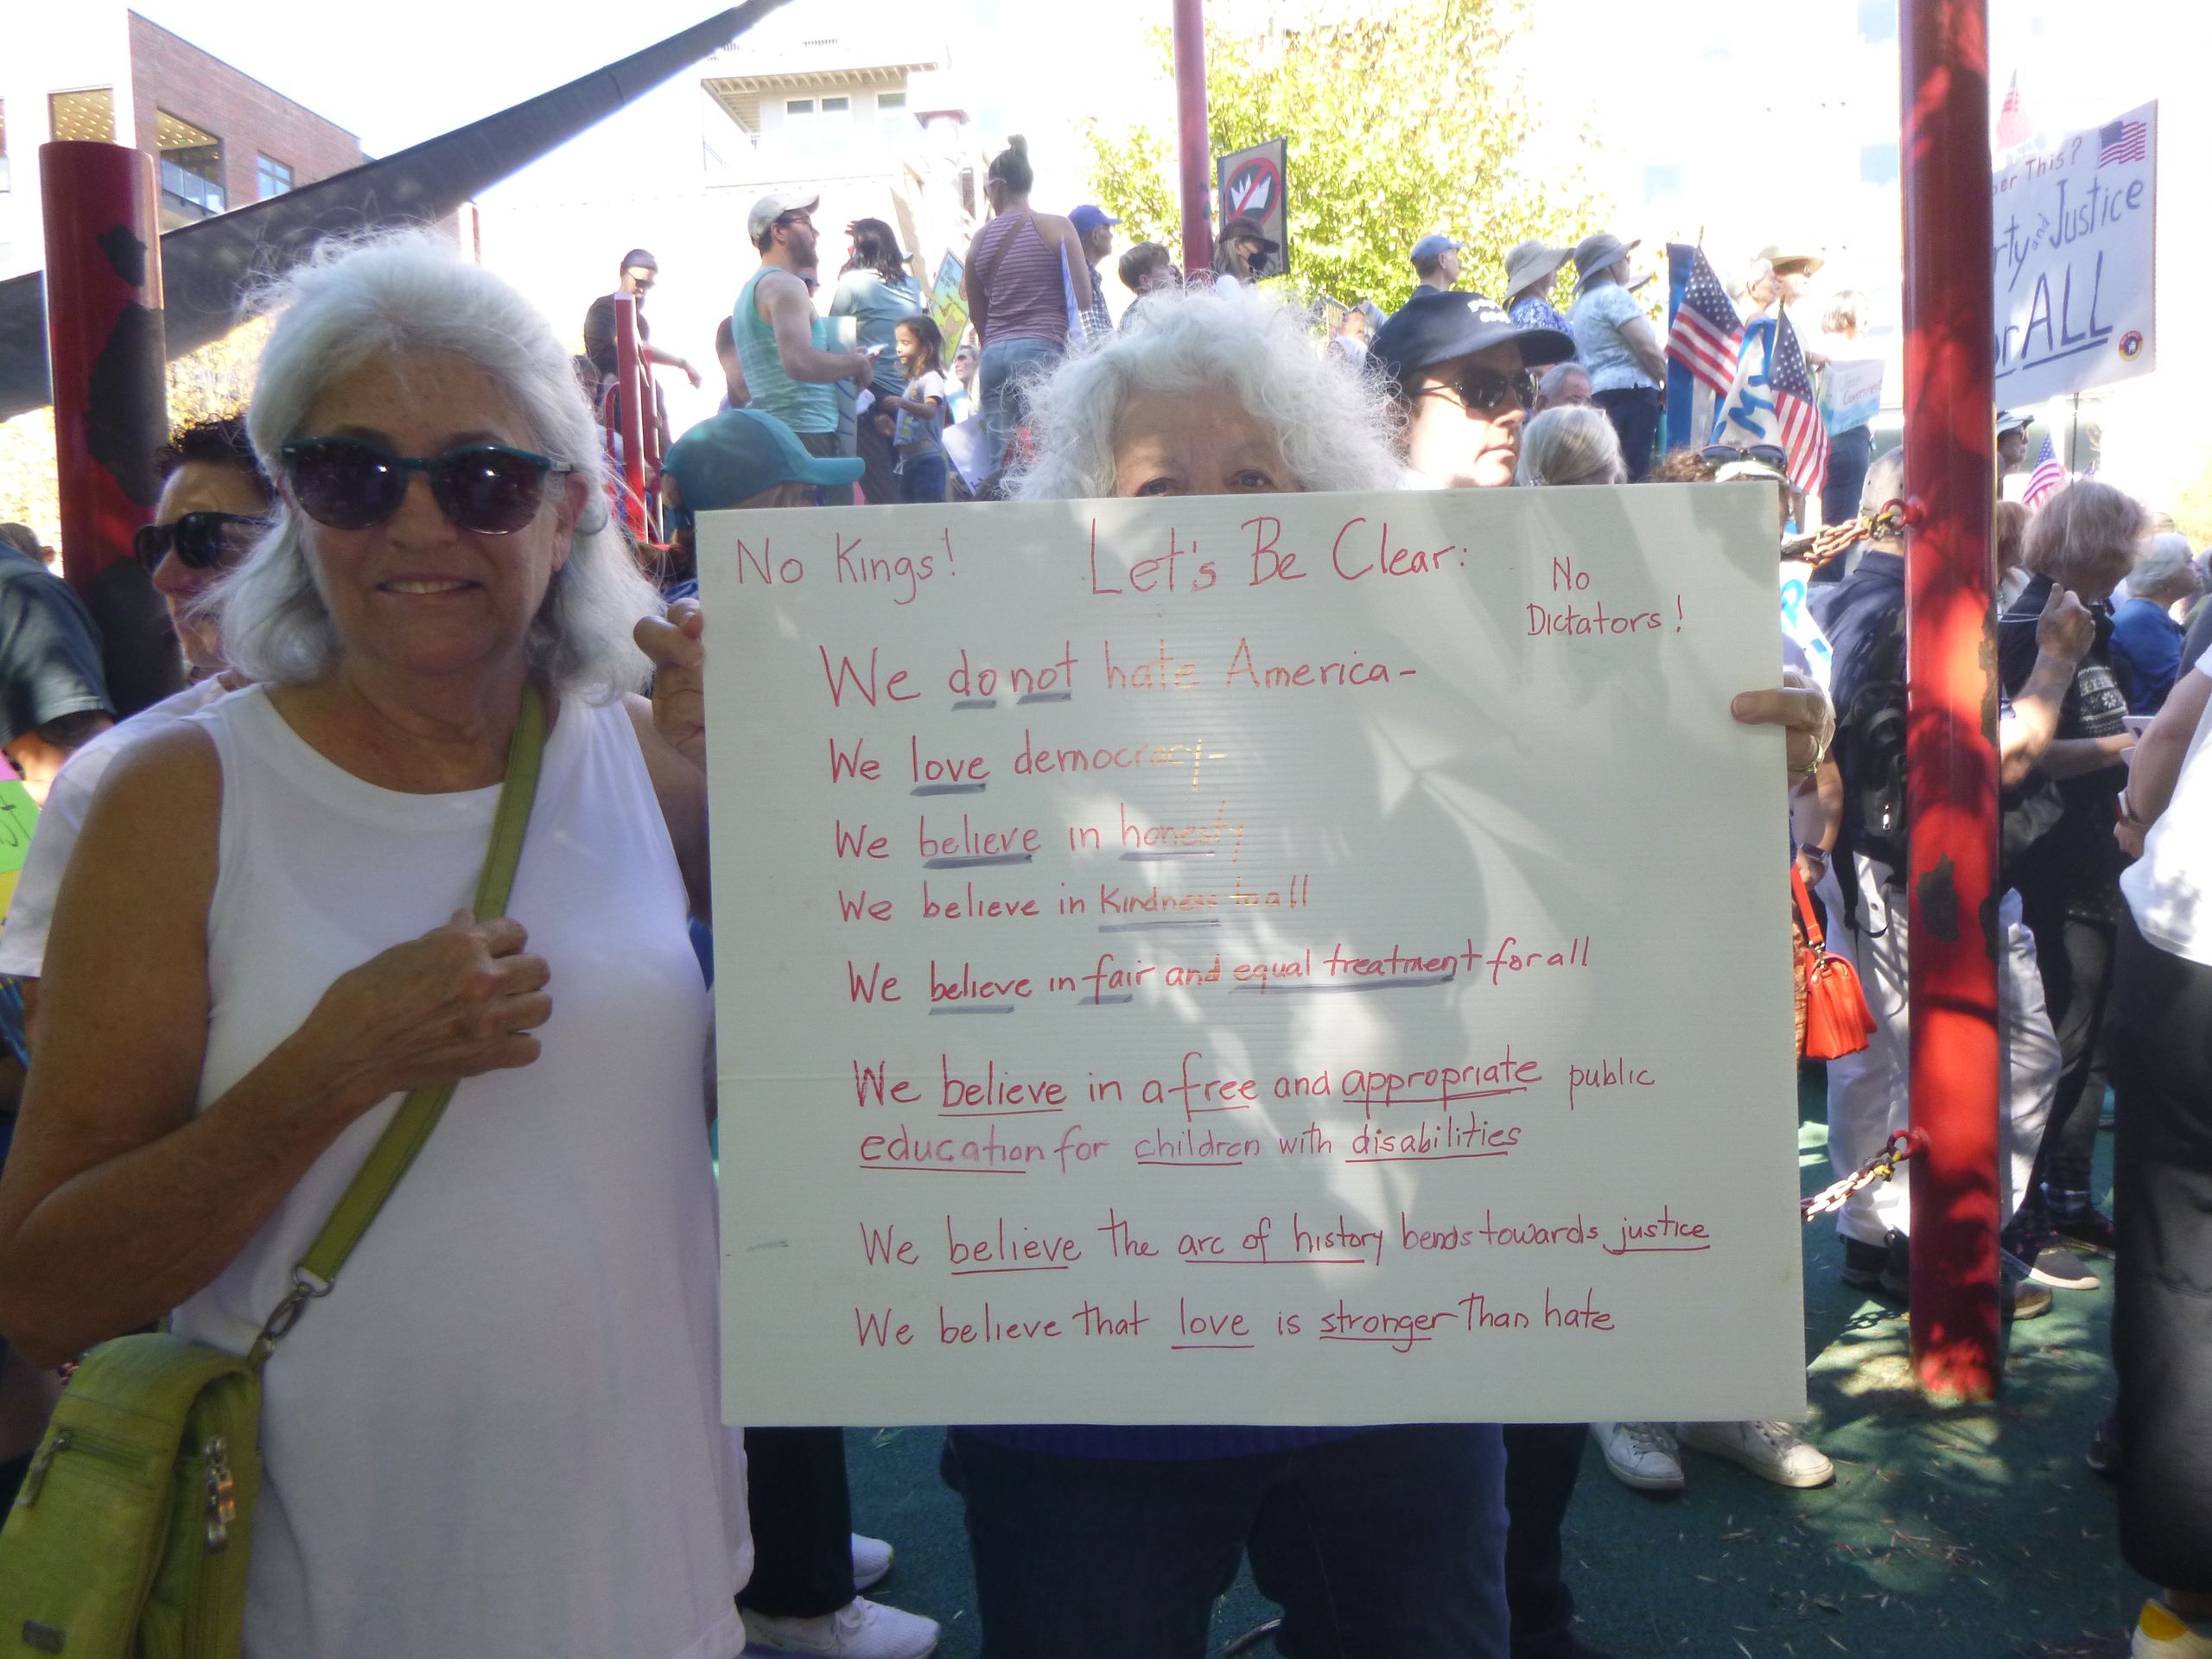 No Kings!
Let's Be Clear:
No
Dictators!
We do not hate America-
We love democracy-
We believe in honesty
We believe in Kindness to all
We believe in fair and equal treatment for all
We believe in a free and appropriate public
education for children with disabilities
We believe the arc of history bends towards justice
We believe that love is stronger than hate
This?
and Justice
ALL